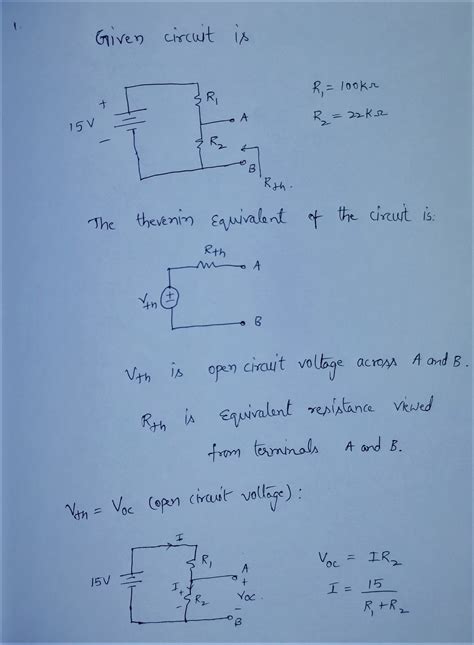 1.
Given circuit is
R₁ = 100kΩ
R₂ = 22kΩ
+
15V
-
R₁
A
R₂
B
Rth.
The thevenin Equivalent of the circuit is:
Rth
A
Vth
+
-
B
Vth is open circuit voltage across A and B.
Rth is Equivalent resistance viewed
from terminals A and B.
Vth = Voc (open circuit voltage):
I
R₁
15V
I
+
R₂
-
A
+
Voc.
-
B
Voc = IR₂
I = 15 / R₁+R₂